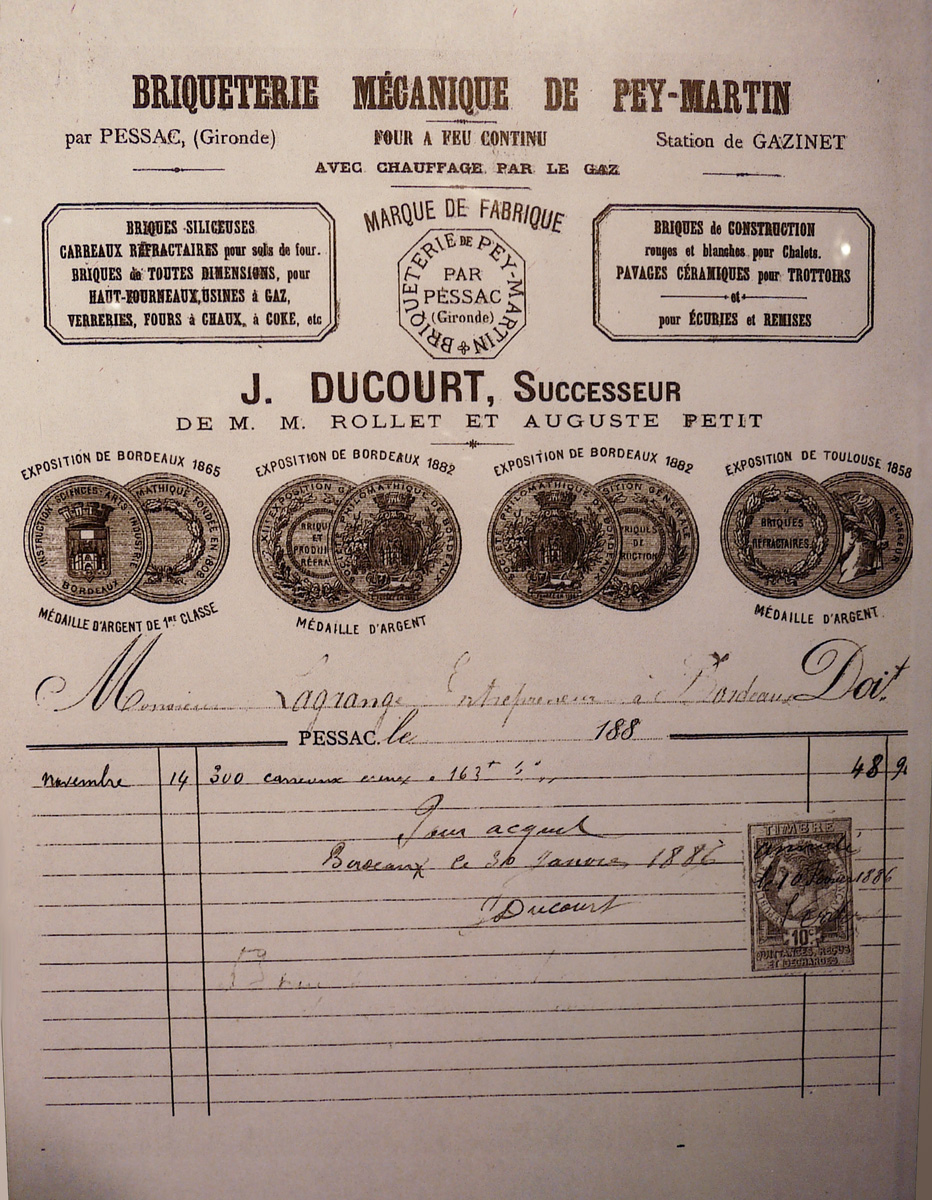 BRIQUETERIE MÉCANIQUE DE PEY-MARTIN
par PESSAC, (Gironde)
FOUR A FEU CONTINU
Station de GAZINET
AVEC CHAUFFAGE PAR LE GAZ
BRIQUES SILICEUSES
CARREAUX RÉFRACTAIRES pour sols de four.
BRIQUES de TOUTES DIMENSIONS, pour
HAUT-FOURNEAUX, USINES à GAZ,
VERRERIES, FOURS à CHAUX, à COKE, etc
MARQUE DE FABRIQUE
BRIQUETERIE DE PEY-MARTIN
PAR
PESSAC
(Gironde)
BRIQUES de CONSTRUCTION
rouges et blanches pour Chalets.
PAVAGES CÉRAMIQUES pour TROTTOIRS
et
pour ÉCURIES et REMISES
J. DUCOURT, SUCCESSEUR
DE M. M. ROLLET ET AUGUSTE PETIT
EXPOSITION DE BORDEAUX 1865
INSTRUCTION SCIENCES ARTS INDUSTRIE
BORDEAUX
MATHIQUE FONDÉE EN 1808
MÉDAILLE D'ARGENT DE 1RE CLASSE
EXPOSITION DE BORDEAUX 1882
XIIE EXPOSITION GÉ
BRIQU
ET
PRODUI
RÉFRA
PHILOMATHIQUE DE BORDEAUX
MÉDAILLE D'ARGENT
EXPOSITION DE BORDEAUX 1882
SOCIÉTÉ PHILOMATHIQUE DE BORDEAUX
POSITION GÉNÉRALE
RIQUES
DE
RUCTION
EXPOSITION DE TOULOUSE 1858
BRIQUES
RÉFRACTAIRES
EMPEREUR
MÉDAILLE D'ARGENT
Monsieur Lagrange Entrepreneur à Bordeaux Doit
PESSAC le 188
novembre 14 300 carreaux creux à 163f 48 90
Pour acquit
Bordeaux le 30 Janvier 1886
J Ducourt
TIMBRE
1886
10c
QUITTANCES, REÇUS
ET DÉCHARGES